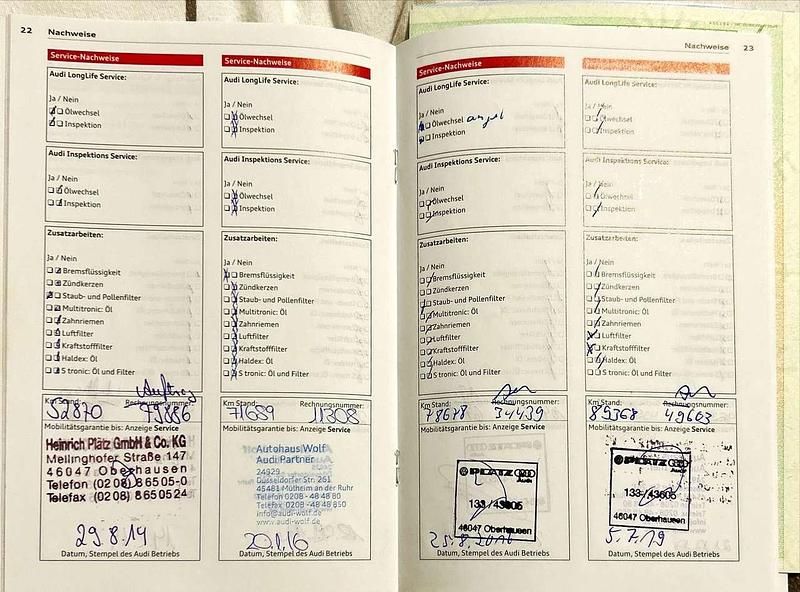 22 Nachweise
Service-Nachweise
Audi LongLife Service:
Ja / Nein
Ölwechsel
Inspektion
Audi Inspektions Service:
Ja / Nein
Ölwechsel
Inspektion
Zusatzarbeiten:
Ja / Nein
Bremsflüssigkeit
Zündkerzen
Staub- und Pollenfilter
Multitronic: Öl
Zahnriemen
Luftfilter
Kraftstofffilter
Haldex: Öl
S tronic: Öl und Filter
Auftrag
Km Stand: Rechnungsnummer:
52870 79886
Mobilitätsgarantie bis: Anzeige Service
Heinrich Plätz GmbH & Co. KG
Mellinghofer Straße 147
46047 Oberhausen
Telefon (0208) 86505-0
Telefax (0208) 8650524
29.8.14
Datum, Stempel des Audi Betriebs
Service-Nachweise
Audi LongLife Service:
Ja / Nein
Ölwechsel
Inspektion
Audi Inspektions Service:
Ja / Nein
Ölwechsel
Inspektion
Zusatzarbeiten:
Ja / Nein
Bremsflüssigkeit
Zündkerzen
Staub- und Pollenfilter
Multitronic: Öl
Zahnriemen
Luftfilter
Kraftstofffilter
Haldex: Öl
S tronic: Öl und Filter
Km Stand: Rechnungsnummer:
71689 11308
Mobilitätsgarantie bis: Anzeige Service
Autohaus Wolf
Audi Partner
24929
Düsseldorfer Str. 261
45481 Mülheim an der Ruhr
Telefon 0208 - 48 48 80
Telefax 0208 - 48 48 850
info@audi-wolf.de
www.audi-wolf.de
20.1.16
Datum, Stempel des Audi Betriebs
Nachweise 23
Service-Nachweise
Audi LongLife Service:
Ja / Nein
Ölwechsel
Inspektion
Audi Inspektions Service:
Ja / Nein
Ölwechsel
Inspektion
Zusatzarbeiten:
Ja / Nein
Bremsflüssigkeit
Zündkerzen
Staub- und Pollenfilter
Multitronic: Öl
Zahnriemen
Luftfilter
Kraftstofffilter
Haldex: Öl
S tronic: Öl und Filter
Km Stand: Rechnungsnummer:
78678 34439
Mobilitätsgarantie bis: Anzeige Service
PLÄTZ
Audi
133/43605
46047 Oberhausen
25.8.2016
Datum, Stempel des Audi Betriebs
Service-Nachweise
Audi LongLife Service:
Ja / Nein
Ölwechsel
Inspektion
Audi Inspektions Service:
Ja / Nein
Ölwechsel
Inspektion
Zusatzarbeiten:
Ja / Nein
Bremsflüssigkeit
Zündkerzen
Staub- und Pollenfilter
Multitronic: Öl
Zahnriemen
Luftfilter
Kraftstofffilter
Haldex: Öl
S tronic: Öl und Filter
Km Stand: Rechnungsnummer:
89368 49603
Mobilitätsgarantie bis: Anzeige Service
PLÄTZ
Audi
133/43605
46047 Oberhausen
5.7.19
Datum, Stempel des Audi Betriebs